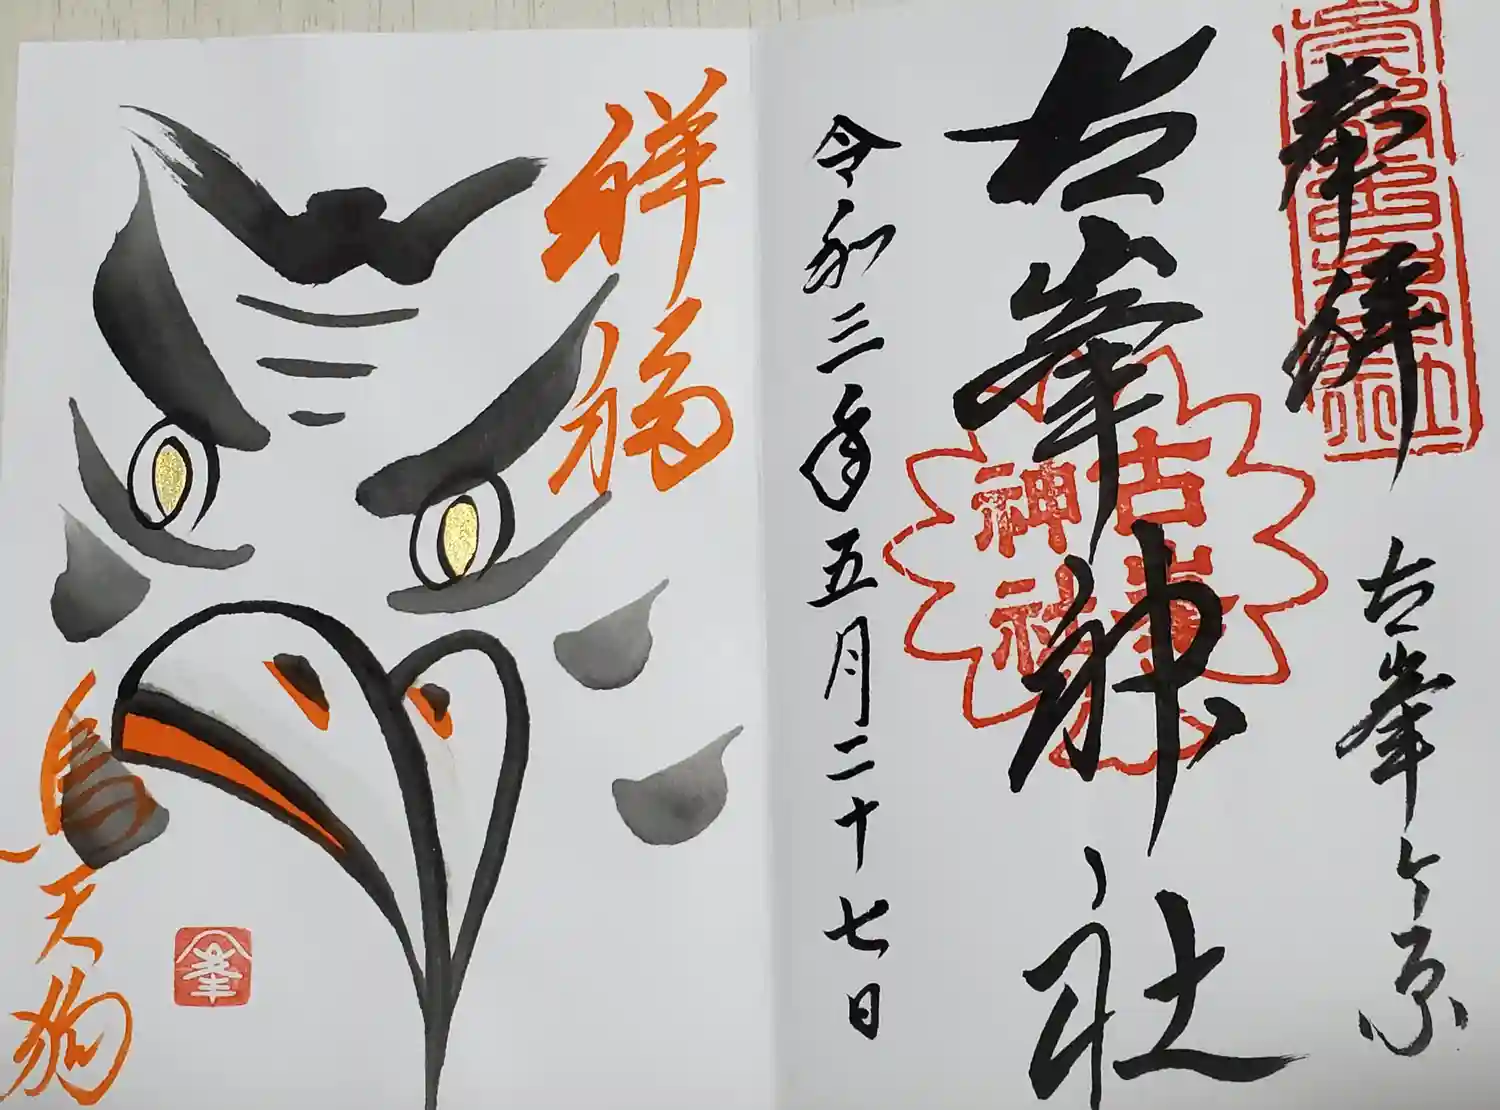 奉拝
古峯ヶ原
古峯神社
古峯神社
令和三年五月二十七日
祥福
烏天狗
峯